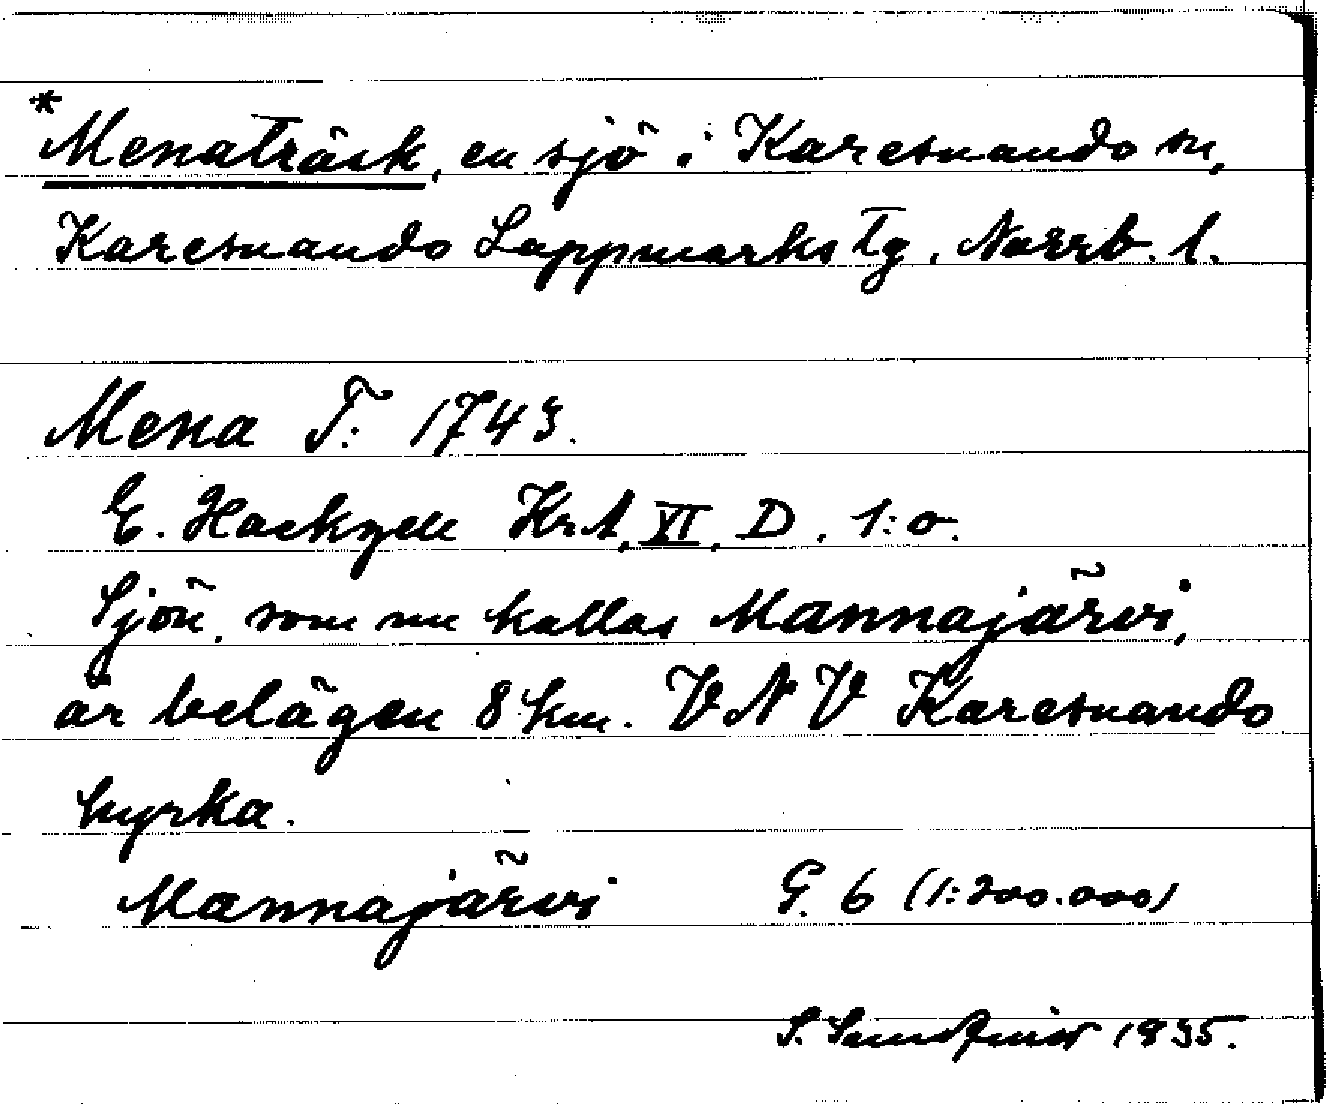 *Menaträsk, en sjö i Karesuando sn,
Karesuando Lappmarks tg, Norrb. l.
Mena T: 1743.
E. Hackzell KrA, VI, D, 1:o.
Sjön, som nu kallas Mannajärvi,
är belägen 8 km. VNV Karesuando
kyrka.
Mannajärvi G. 6 (1:200.000)
S. Sundqvist 1935.